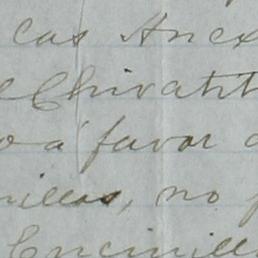 cas Anex
Chivatit
o a favor
illas, no
Encinill